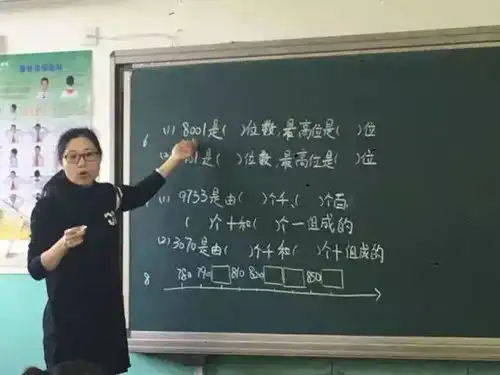 6 (1) 8001是( )位数,最高位是( )位
01是( )位数,最高位是( )位
(1) 9753是由( )个千、( )个百
( )个十和( )个一组成的
(2) 3070是由( )个千和( )个十组成的
8 780 790 □ 810 820 □ □ 850 □